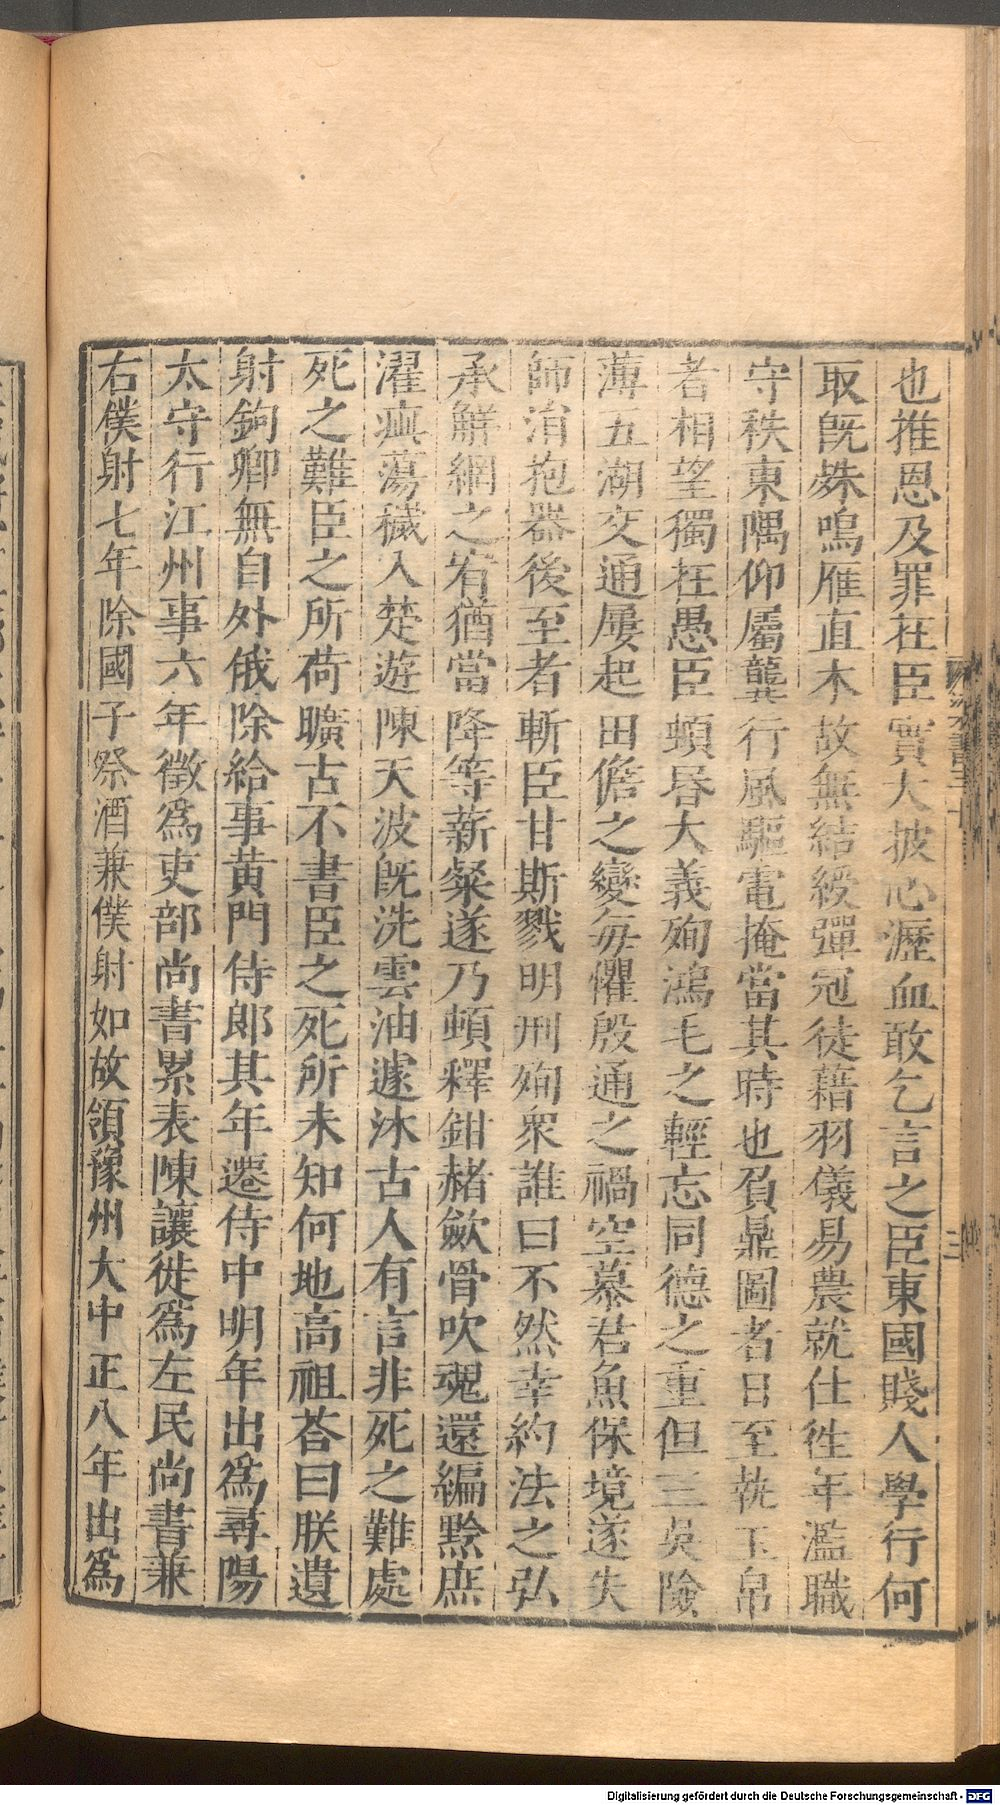 也推恩及罪在臣實大披心瀝血敢乞言之臣東國賤人學行何
取旣殊鳴雁直木故無結綬彈冠徒藉羽儀易農就仕徃年濫職
守秩東隅仰屬龔行風驅電掩當其時也負鼎圖者日至執玉帛
者相望獨在愚臣頓昬大義殉鴻毛之輕忘同德之重但三吳險
薄五湖交通屢起田儋之變每懼殷通之禍空慕君魚保境遂失
師涓抱器後至者斬臣甘斯戮明刑殉衆誰曰不然幸約法之弘
承解網之宥猶當降等薪粲遂乃頓釋鉗赭斂骨吹魂還編黔庶
濯疵蕩穢入楚遊陳天波旣洗雲油遽沐古人有言非死之難處
死之難臣之所荷曠古不書臣之死所未知何地高祖荅曰朕遺
射鉤卿無自外俄除給事黃門侍郎其年遷侍中明年出爲尋陽
太守行江州事六年徵爲吏部尚書累表陳讓徙爲左民尚書兼
右僕射七年除國子祭酒兼僕射如故領豫州大中正八年出爲
三
Digitalisierung gefördert durch die Deutsche Forschungsgemeinschaft - DFG